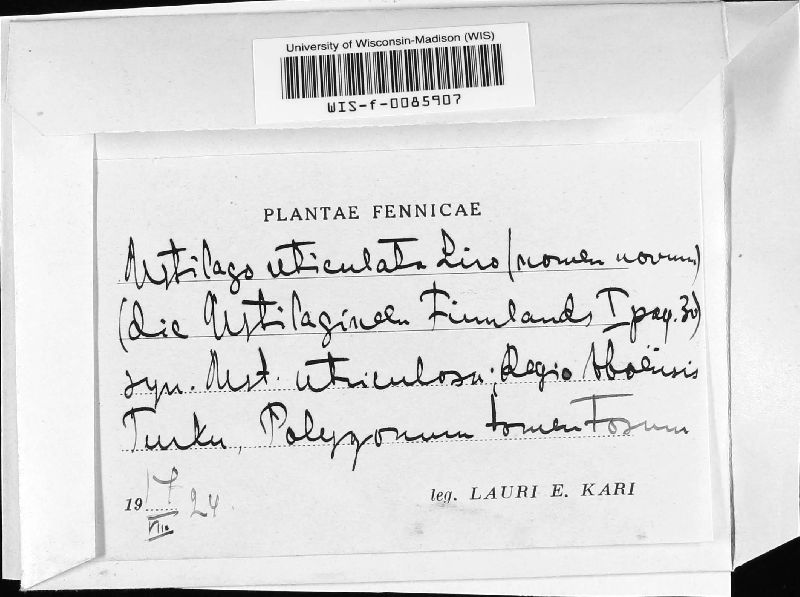 University of Wisconsin-Madison (WIS)
WIS-f-0085907
PLANTAE FENNICAE
Ustilago utriculata Liro (nomen novum)
(die Ustilagineen Finnlands I pag. 30)
syn. Ust. utriculosa; Regio Aboënsis
Turku, Polygonum tomentosum
19 17 24
VIII
leg. LAURI E. KARI